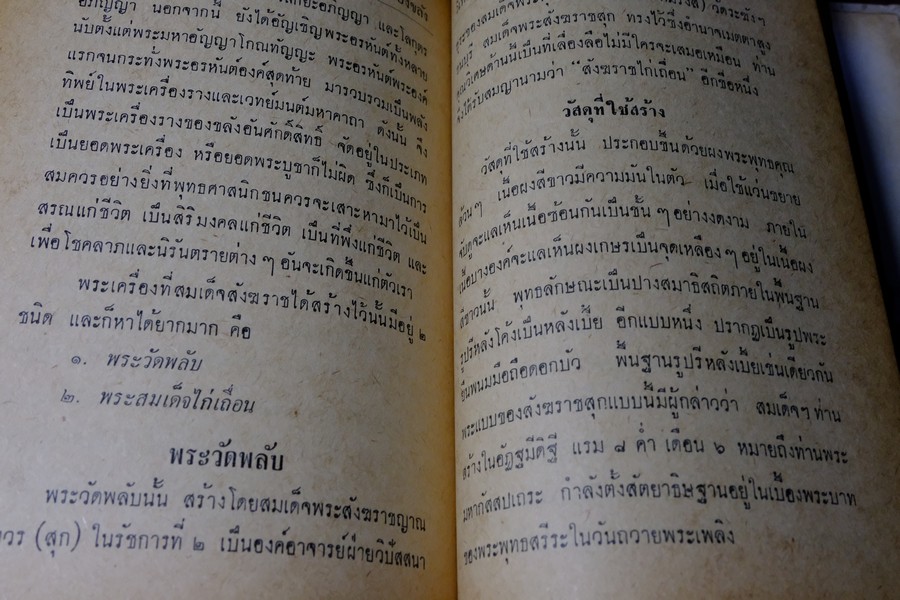 อภิญญา นอกจากนี้ ยังได้อัญเชิญพระอรหันต์ทั้งหลาย
นับตั้งแต่พระมหาอัญญาโกณทัญญะ พระอรหันต์พระองค์
แรกจนกระทั่งพระอรหันต์องค์สุดท้าย มารวบรวมเป็นพลัง
ทิพย์ในพระเครื่องรางและเวทย์มนต์มหาคาถา ดังนั้น จึง
เป็นพระเครื่องรางของขลังอันศักดิ์สิทธิ์ จัดอยู่ในประเภท
เป็นยอดพระเครื่อง หรือยอดพระบูชาก็ไม่ผิด ซึ่งก็เป็นการ
สมควรอย่างยิ่งที่พุทธศาสนิกชนควรจะเสาะหามาไว้เป็น
สรณแก่ชีวิต เป็นสิริมงคลแก่ชีวิต เป็นที่พึ่งแก่ชีวิต และ
เพื่อโชคลาภและนิรันตรายต่าง ๆ อันจะเกิดขึ้นแก่ตัวเรา
พระเครื่องที่สมเด็จสังฆราชได้สร้างไว้นั้นมีอยู่ ๒
ชนิด และก็หาได้ยากมาก คือ
๑. พระวัดพลับ
๒. พระสมเด็จไก่เถื่อน
พระวัดพลับ
พระวัดพลับนั้น สร้างโดยสมเด็จพระสังฆราชญาณ
วร (สุก) ในรัชการที่ ๒ เป็นองค์อาจารย์ฝ่ายวิปัสสนา
วัดระฆังฯ
สมเด็จพระสังฆราชสุก ทรงไว้ซึ่งอำนาจเมตตาสูง
คุณวิเศษด้านนี้เป็นที่เลื่องลือไม่มีใครจะเสมอเหมือน ท่าน
จึงได้รับสมญานามว่า "สังฆราชไก่เถื่อน" อีกชื่อหนึ่ง
วัสดุที่ใช้สร้าง
วัสดุที่ใช้สร้างนั้น ประกอบขึ้นด้วยผงพระพุทธคุณ
ล้วนๆ เนื้อผงสีขาวมีความมันในตัว เมื่อใช้แว่นขยาย
จับดูจะแลเห็นเนื้อซ้อนกันเป็นชั้น ๆ อย่างงดงาม ภายใน
เนื้อบางองค์จะแลเห็นผงเกษรเป็นจุดเหลือง ๆ อยู่ในเนื้อผง
สีขาวนั้น พุทธลักษณะเป็นปางสมาธิสถิตภายในพื้นฐาน
รูปรีหลังโค้งเป็นหลังเบี้ย อีกแบบหนึ่ง ปรากฏเป็นรูปพระ
ยืนพนมมือถือดอกบัว พื้นฐานรูปรีหลังเบี้ยเช่นเดียวกัน
พระแบบของสังฆราชสุกแบบนี้มีผู้กล่าวว่า สมเด็จฯ ท่าน
สร้างในอัฏฐมีดิฐี แรม ๘ ค่ำ เดือน ๖ หมายถึงท่านพระ
มหากัสสปเถระ กำลังตั้งสัตยาธิษฐานอยู่ในเบื้องพระบาท
ของพระพุทธสรีระในวันถวายพระเพลิง